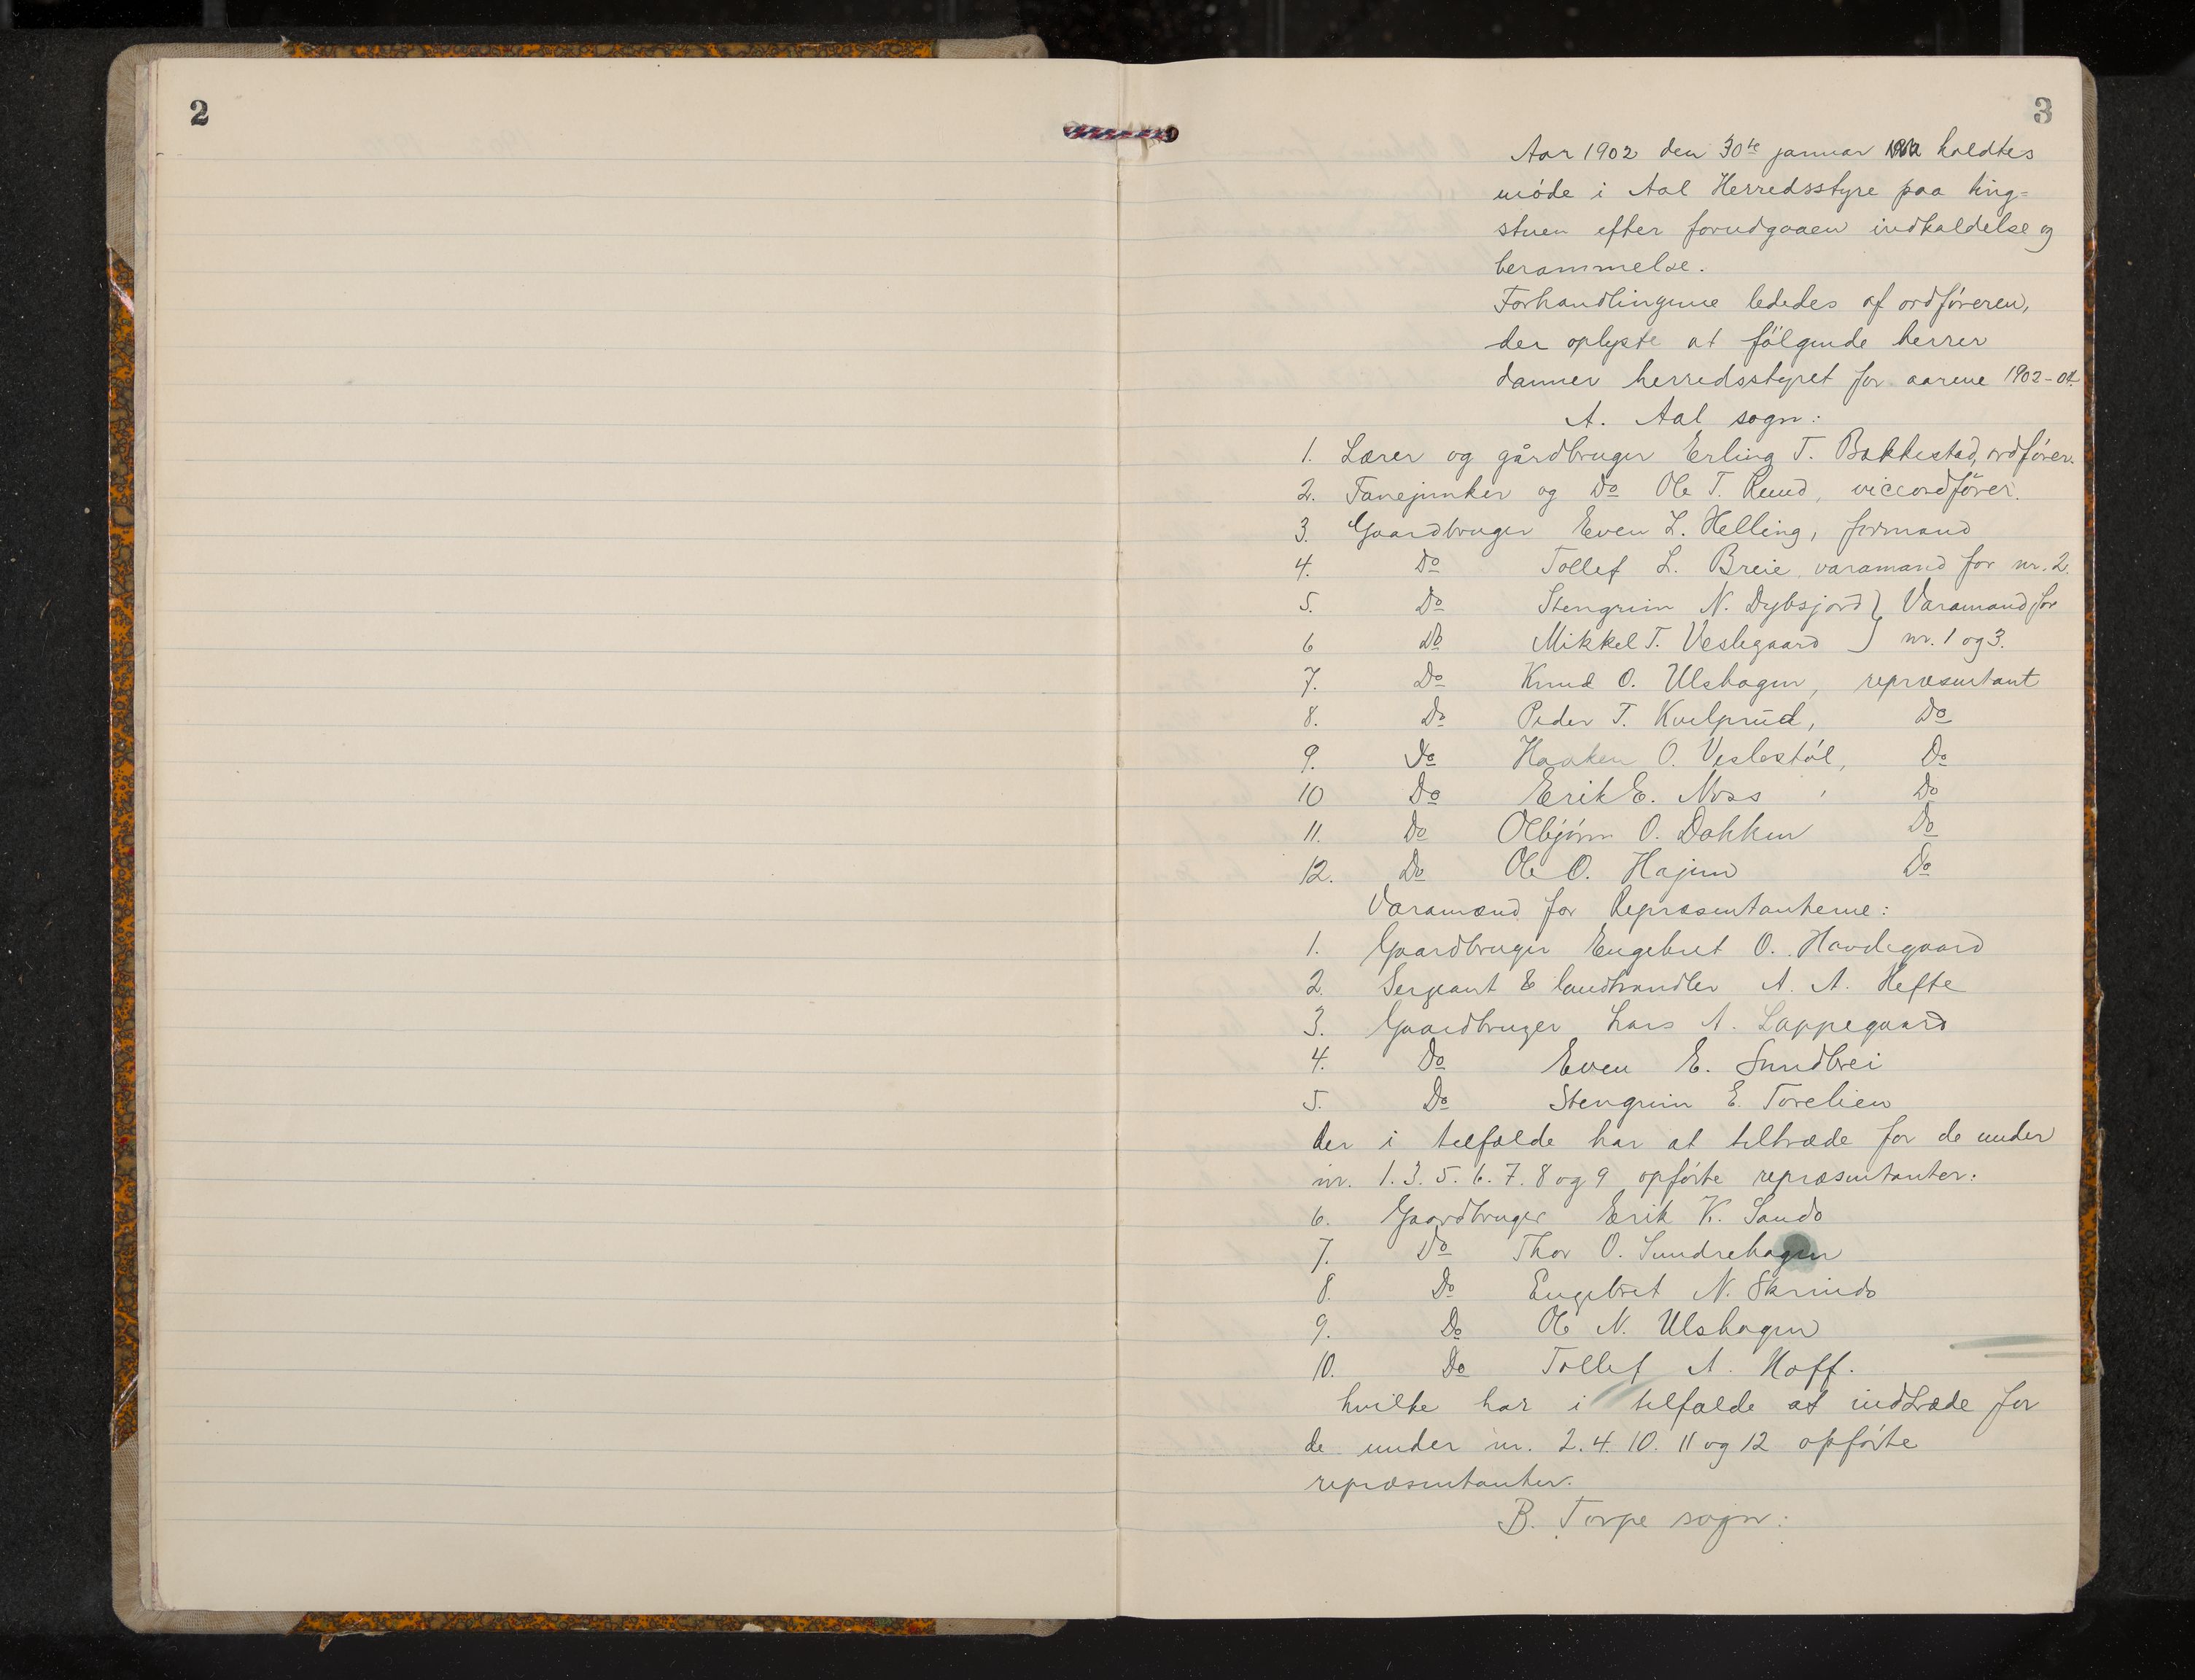 2
3
Aar 1902 den 30te januar holdtes
möde i Aal Herredsstyre paa ting-
stuen efter forudgaaen indkaldelse og
berammelse.
Forhandlingene lededes af ordföreren,
der oplyste at fölgende herrer
danner herredsstyret for aarene 1902-04.
A. Aal sogn:
1. Lærer og gårdbruger Erling T. Bakkestad, ordfører.
2. Fanejunker og Do Ole T. Ruud, viceordfører.
3. Gaardbruger Even L. Helling, formand
4. Do Tollef L. Breie, varamand for nr. 2.
5. Do Stengrim N. Dybsjord } Varamand for
6 Do Mikkel T. Veslegaard } nr. 1 og 3.
7. Do Knud O. Ulshagen, repræsentant
8. Do Peder T. Kvelprud, Do
9. Do Haaken O. Veslestöl, Do
10 Do Erik E. Noss , Do
11. Do Olbjörn O. Dokken Do
12. Do Ole O. Hajem Do
Varamænd for Repræsentanterne:
1. Gaardbruger Engebret O. Havdegaard
2. Sergeant & landhandler A. A. Hefte
3. Gaardbruger Lars A. Lappegaard
4. Do Even E. Sundbrei
5. Do Stengrim E. Torelien
der i telfælde har at tiltræde for de under
nr. 1. 3. 5. 6. 7. 8 og 9 opförte repræsentanter:
6. Gaardbruger Erik K. Sando
7. Do Thor O. Sundrehagen
8. Do Engebret N. Skrindo
9. Do Ole N. Ulshagen
10. Do Tollef A. Hoff.
hvilke har i telfælde at indtræde for
de under nr. 2. 4. 10. 11 og 12 opförte
repræsentanter.
B. Torpe sogn: